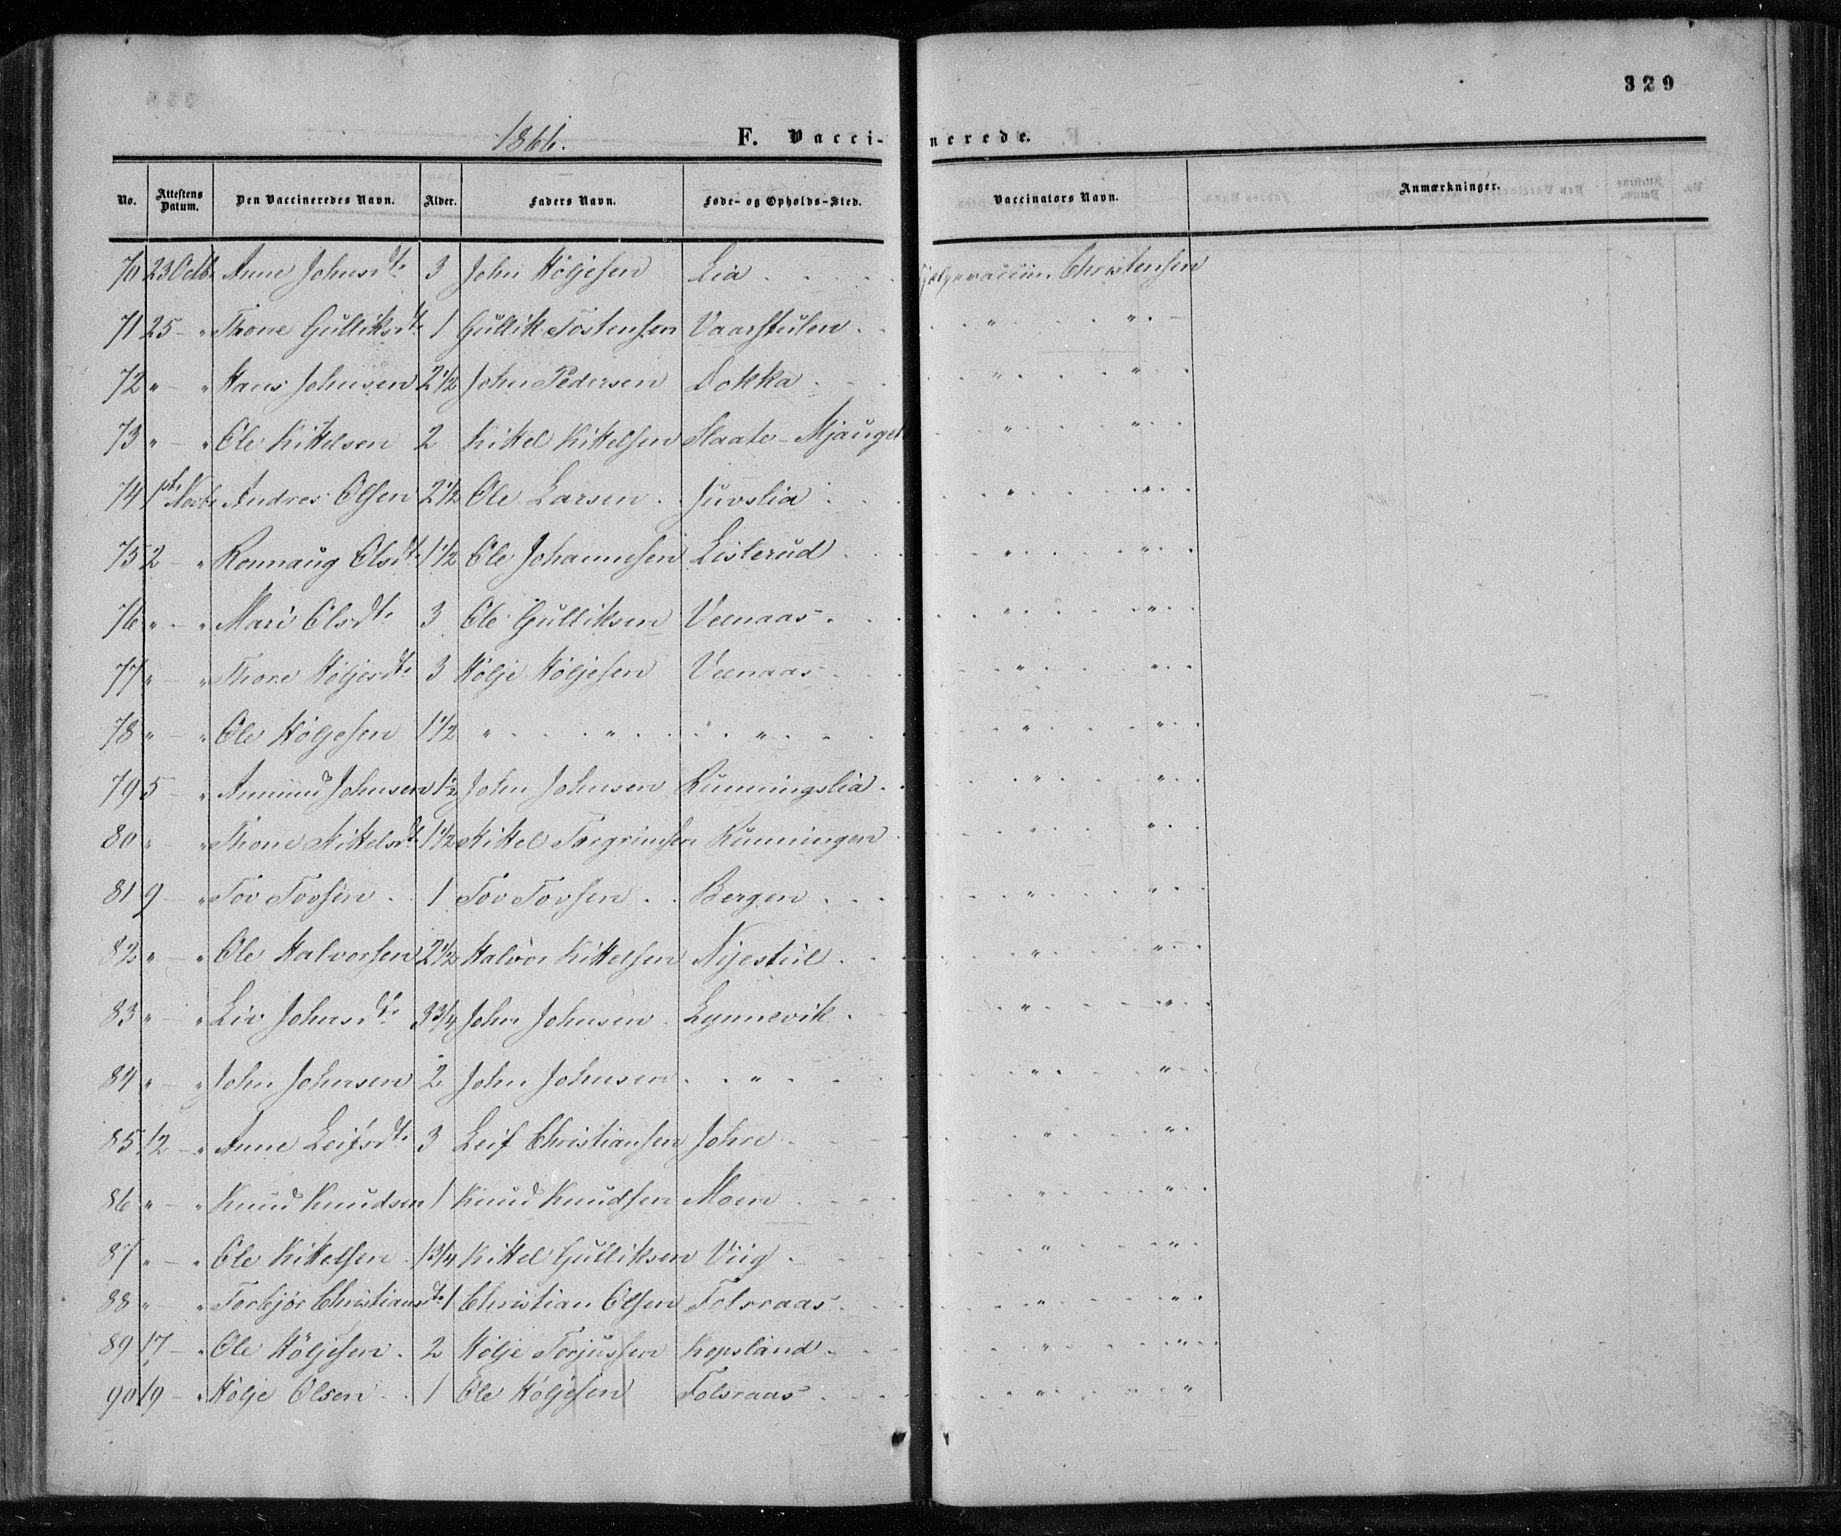 329
1866. F. Vacci- nerede.
No. Attestens Datum. Den Vaccineredes Navn. Alder. Faders Navn. Føde- og Opholds-Sted. Vaccinators Navn. Anmærkninger.
70 23 Octb Anne Johnsdtr 3 John Höljesen Lia Christensen
71 25 - " Thone Gulliksdtr 1 Gullik Tostensen Vaarstulen " "
72 " - " Hans Johnsen 2 1/2 John Pedersen Dokka " "
73 " - " Ole Kittelsen 2 Kittel Kittelsen Slaato-Mjauget " "
74 1ste Novbr Andres Olsen 2 1/2 Ole Larsen Juvslia " "
75 2 " Ronnaug Olsdtr 1 1/2 Ole Johannesen Listerud " "
76 " - " Mari Olsdtr 3 Ole Gulliksen Veenaas " "
77 " - " Thone Höljesdtr 3 Hölje Höljesen Veenaas " "
78 " - " Ole Höljesen 1 1/2 " " " " "
79 5 - " Anmund Johnsen 1/2 John Johnsen Runningslia " "
80 " " Thone Kittelsdtr 1 1/2 Kittel Torgrimsen Runningen " "
81 9 - " Tov Tovsen 1 Tov Tovsen Bergen " "
82 " - " Ole Halvorsen 2 1/2 Halvor Kittelsen Nijestul " "
83 " - " Liv Johnsdtr 3 3/4 John Johnsen Lynnevik " "
84 " - " John Johnsen 2 John Johnsen " " "
85 12 - " Anne Leifsdtr 3 Leif Christiansen Johre " "
86 " - " Knud Knudsen 1 Knud Knudsen Moen " "
87 " - " Ole Kittelsen 1 3/4 Kittel Gulliksen Viig " "
88 " - " Torbjør Christiansdtr 1 Christian Olsen Folsraas " "
89 17 - " Ole Höljesen 2 Hölje Torjussen Kopsland " "
90 19 - " Hölje Olsen 1 Ole Höljesen Folsraas " "